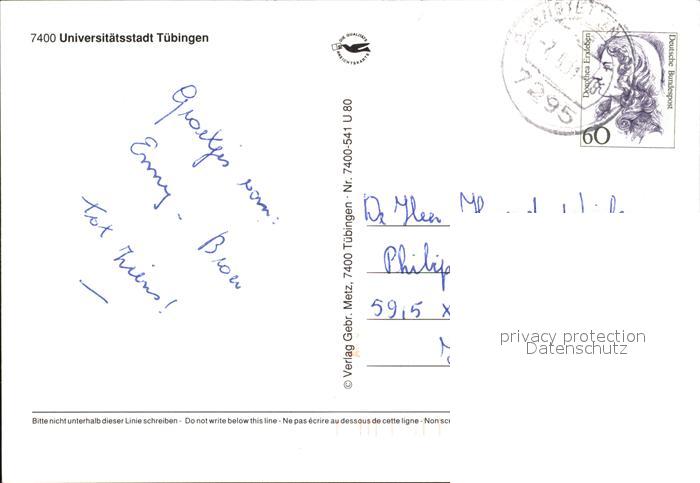 7400 Universitätsstadt Tübingen
DIE QUALITÄTS
ANSICHTSKARTE
7295
Dorothea Erxleben
Deutsche Bundespost
60
Groetjes van:
Emmy - Bram
tot ziens!
© Verlag Gebr. Metz, 7400 Tübingen · Nr. 7400-541 U 80
De Heer
Philip
59,5 x
privacy protection
Datenschutz
Bitte nicht unterhalb dieser Linie schreiben - Do not write below this line - Ne pas écrire au dessous de cette ligne - Non sc